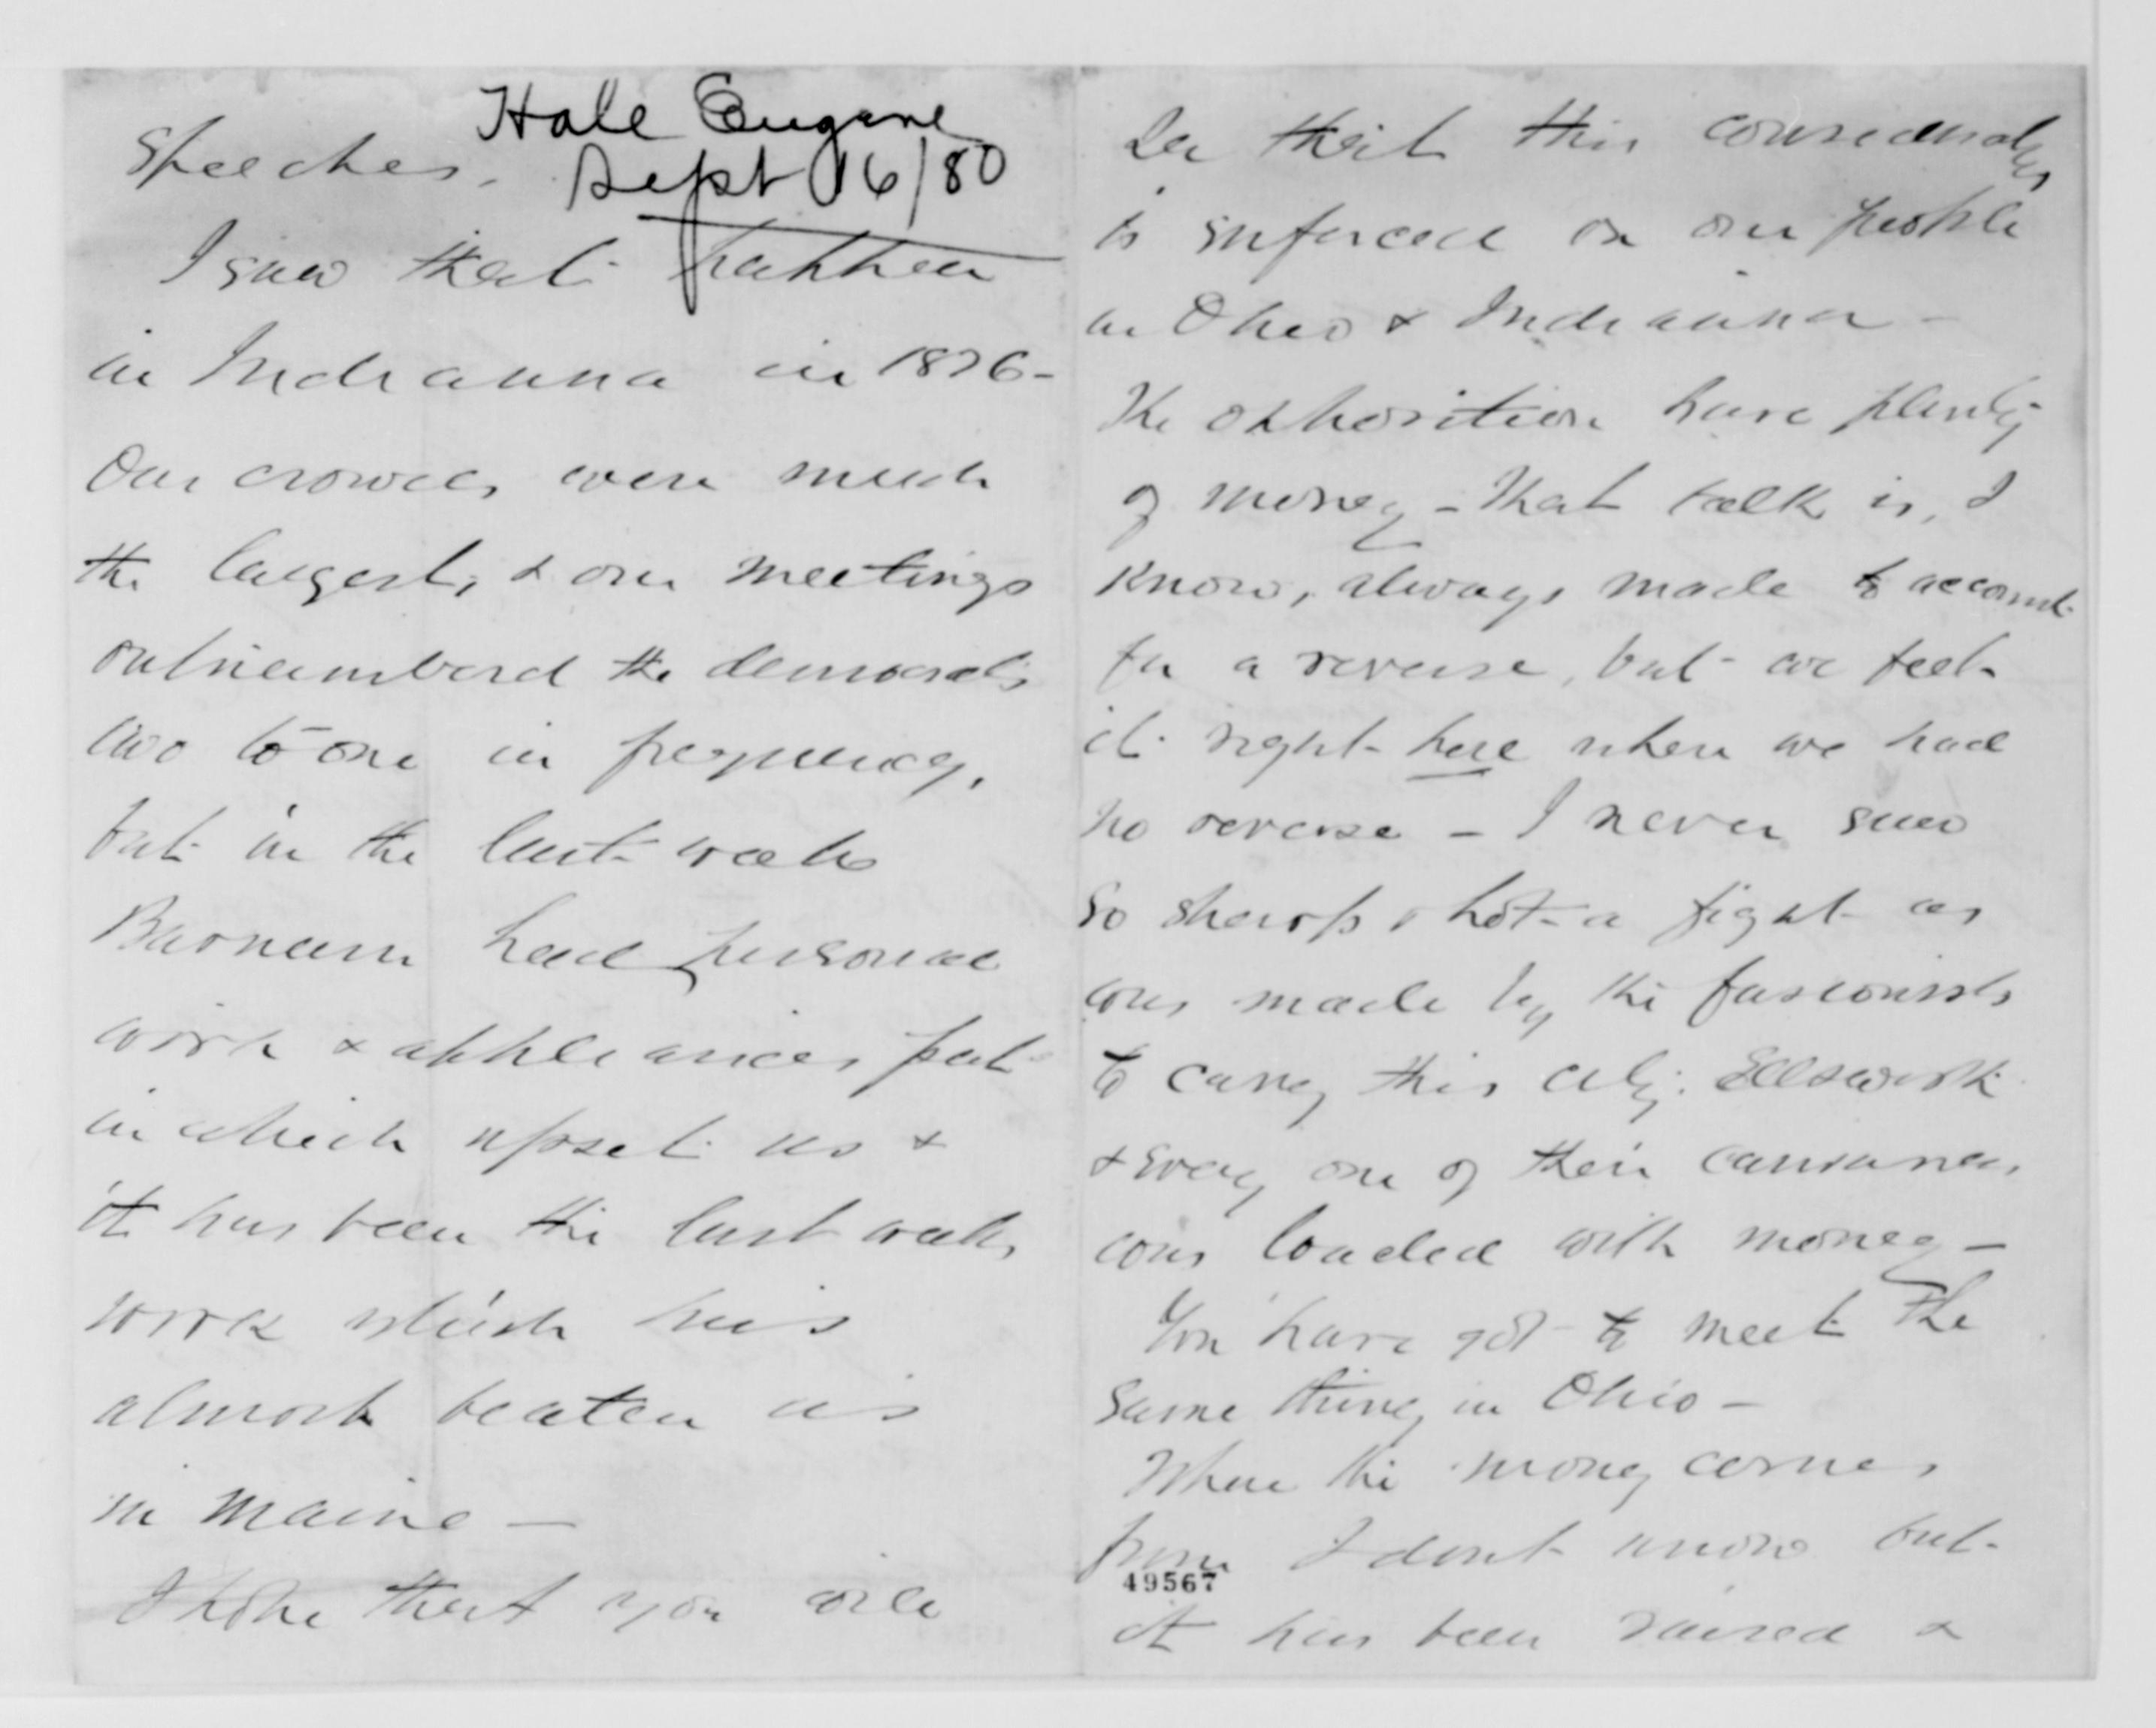 Hale Eugene
Sept 16/80
Speeches.
I saw that happen
in Indianna in 1876-
Our crowds were much
the largest, & our meetings
outnumbered the democrats
two to one in frequency,
but in the last week
Barnum had personal
work & appliances put
in which upset us &
it has been the last weeks
work which has
almost beaten us
in Maine —
I hope that you will
see that this consideration
is enforced on our people
in Ohio & Indianna -
The opposition have plenty
of money - That talk is, I
know, always made to account
for a reverse, but we feel
it right here where we had
no reverse - I never saw
so sharp & hot a fight as
was made by the fusionists
to carry this city. Ellsworth
& every one of their canvasses
was loaded with money -
You have got to meet the
same thing in Ohio -
Where the money comes
from I dont know but
49567
it has been raised &